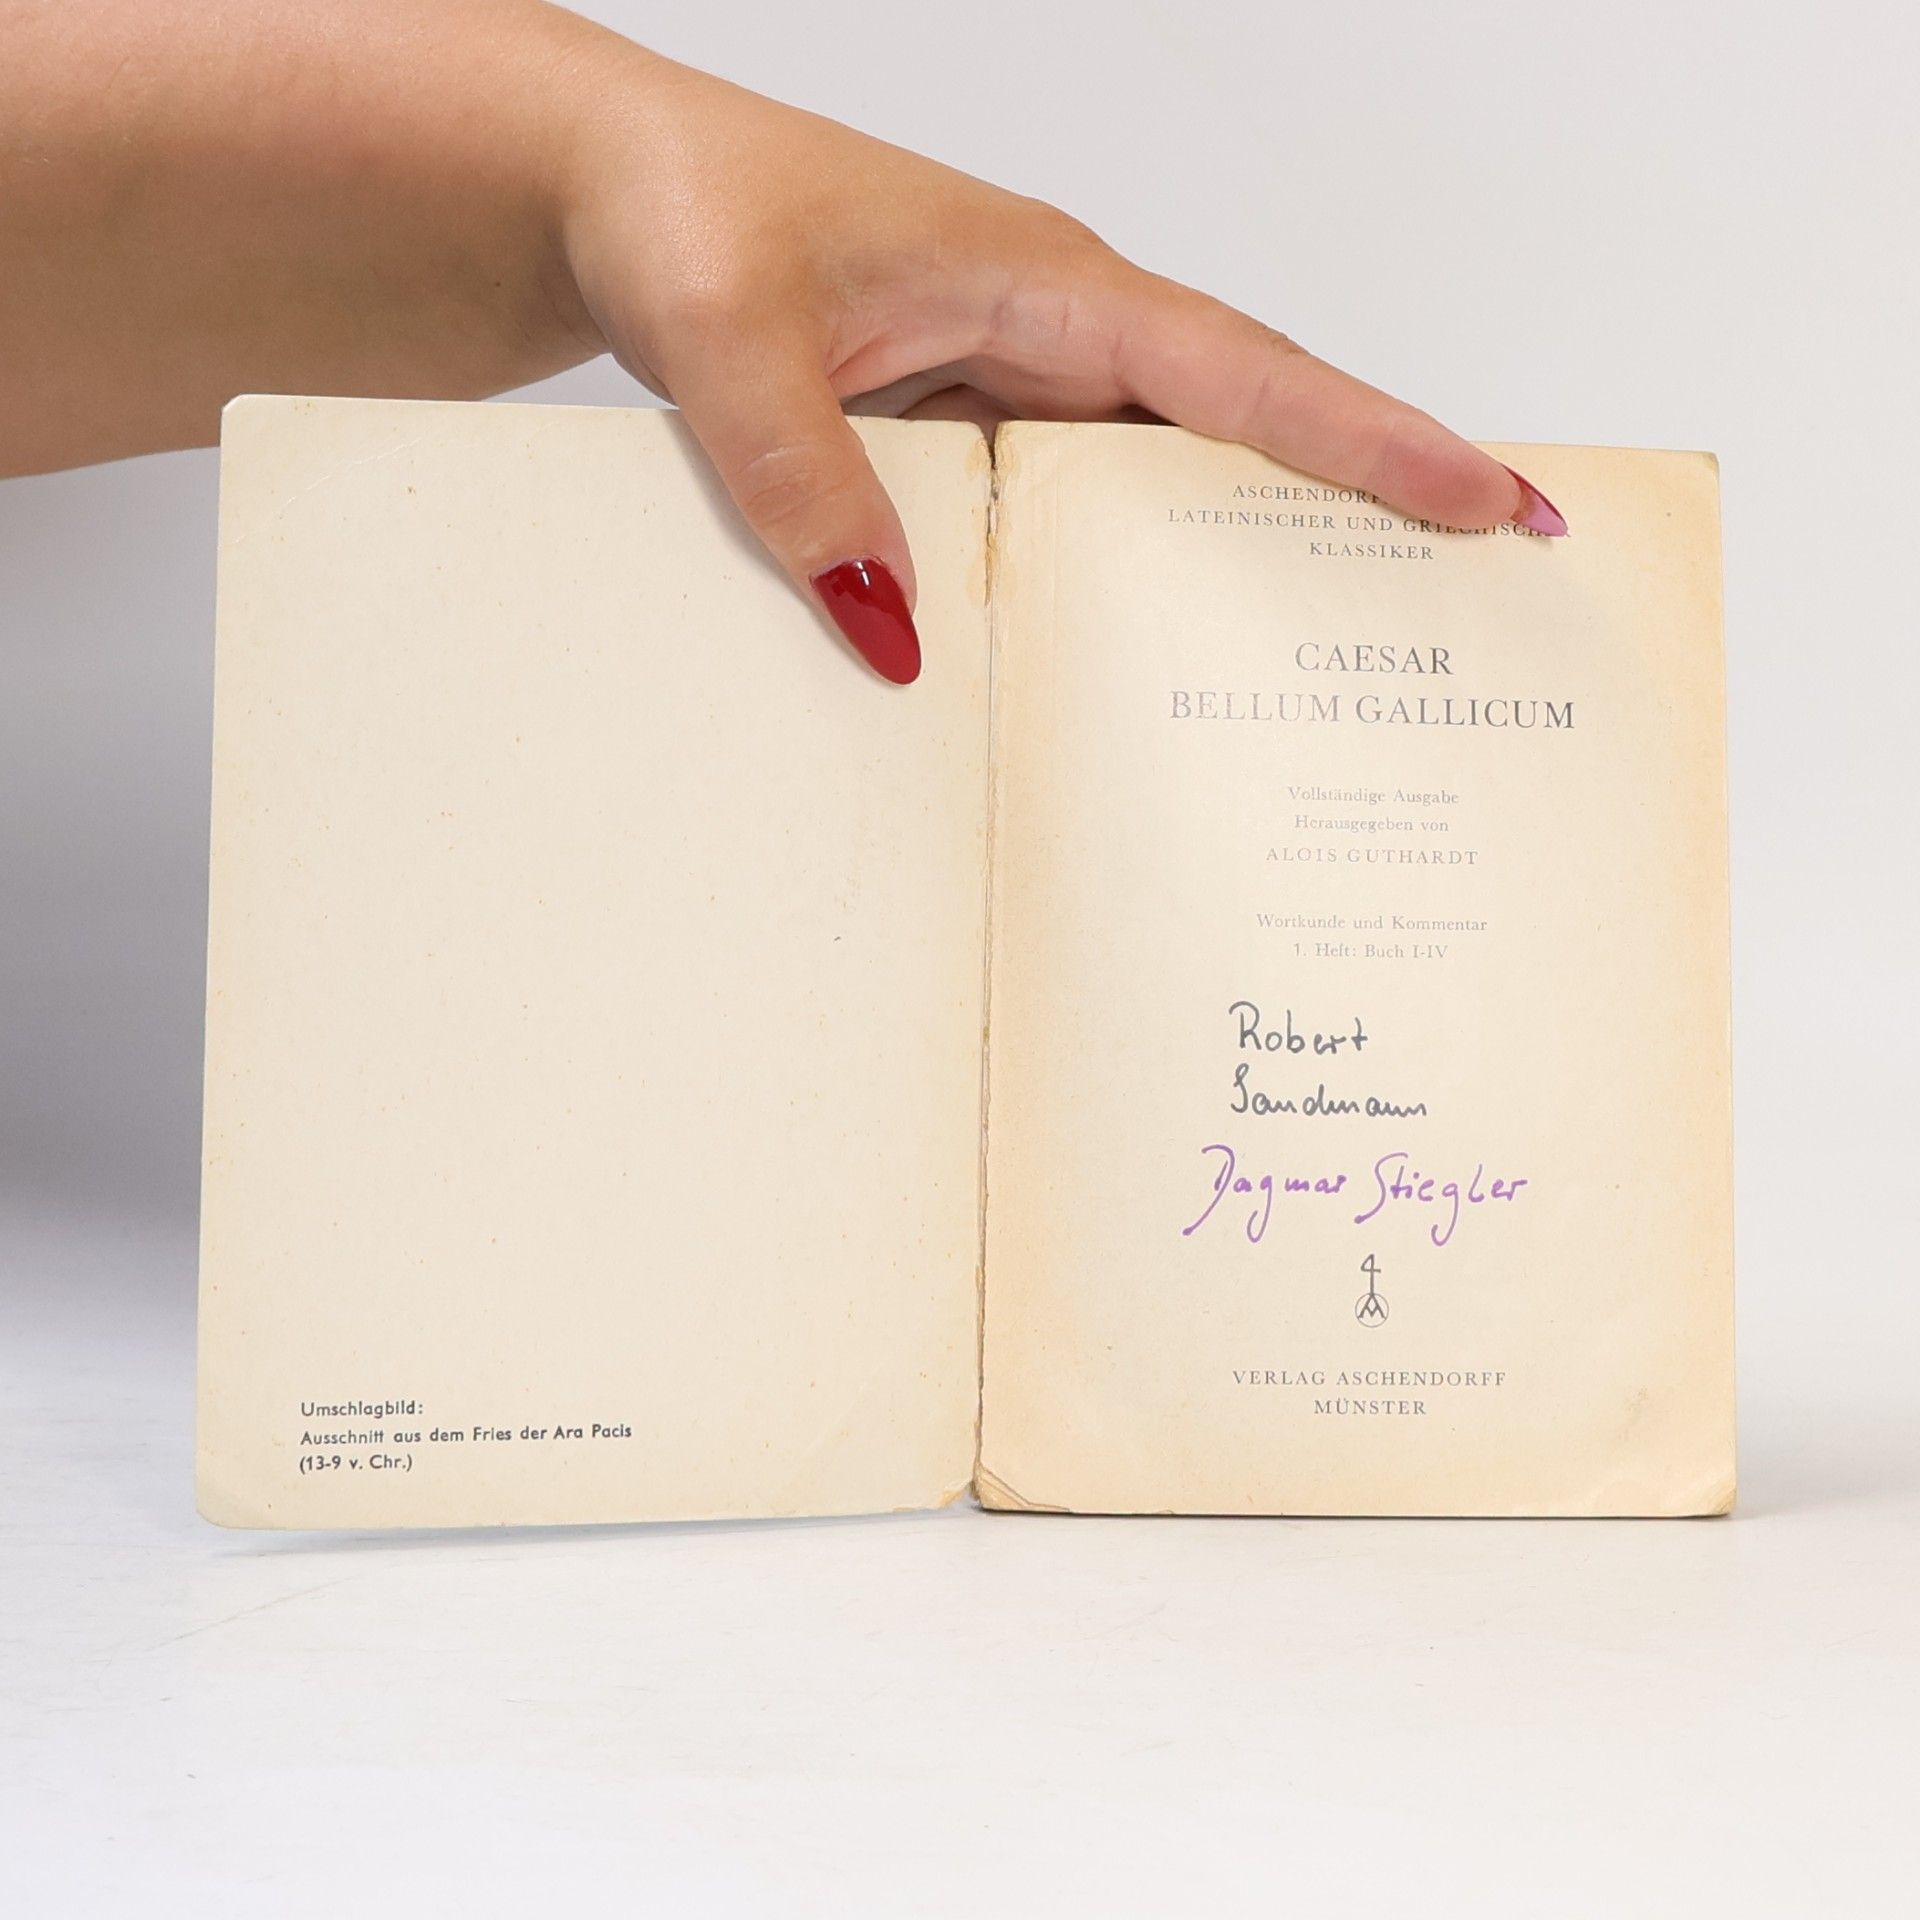 Umschlagbild:
Ausschnitt aus dem Fries der Ara Pacis
(13-9 v. Chr.)
LATEINISCHER UND
KLASSIKER
CAESAR
BELLUM GALLICUM
Vollständige Ausgabe
Herausgegeben von
ALOIS GUTHARDT
Wortkunde und Kommentar
1. Heft: Buch I-IV
Robert
Sandmann
Dagmar Stiegler
VERLAG ASCHENDORFF
MÜNSTER